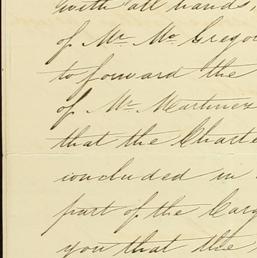 with all hands,
of Mr. McGregor
to forward the
of Mr. Martinez
that the Charte
concluded in
part of the Carg
you that the